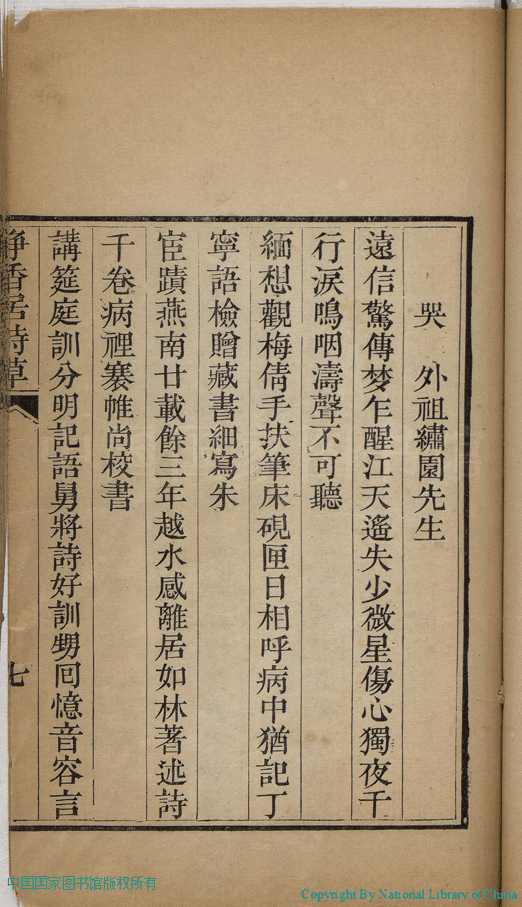 哭　外祖繡園先生
遠信驚傳梦乍醒江天遙失少微星傷心獨夜千
行淚鳴咽濤聲不可聽
緬想觀梅倩手扶筆床硯匣日相呼病中猶記丁
寧語檢贈藏書細寫朱
宦蹟燕南廿載餘三年越水感離居如林著述詩
千卷病裡褰帷尚校書
講筵庭訓分明記語舅將詩好訓甥囘憶音容言
淨香居詩草
七
中国国家图书馆版权所有
Copyright By National Library of China